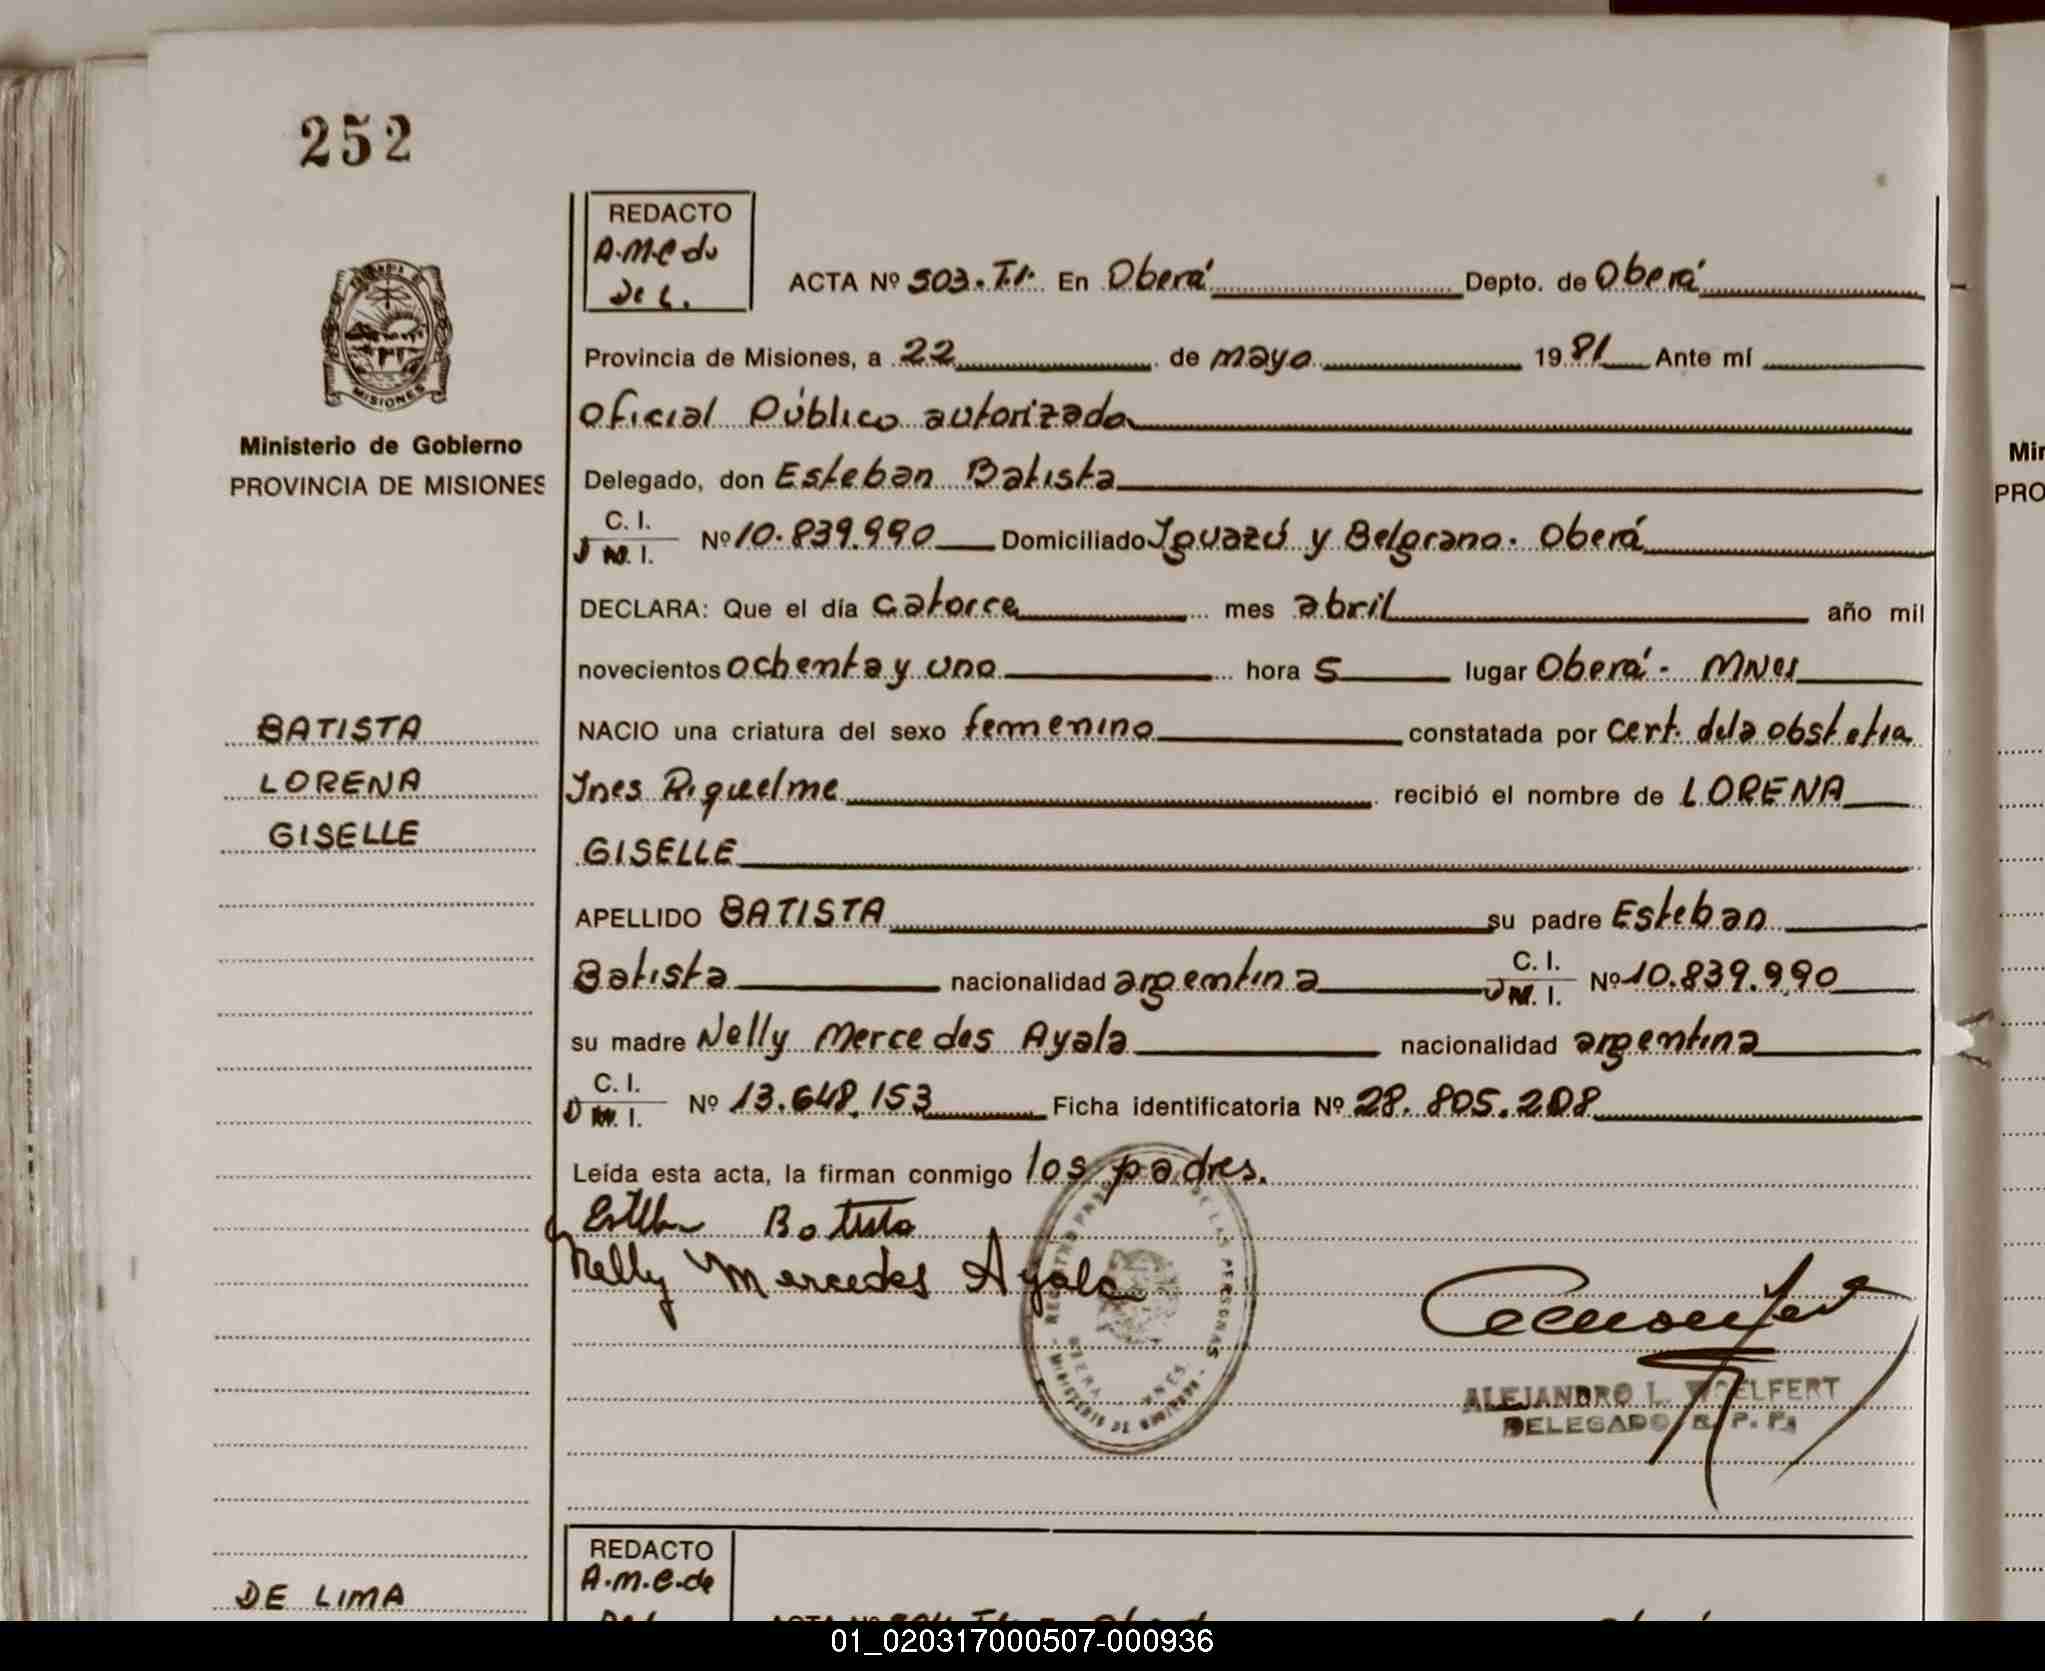 252
REDACTO
A.M.C de
De L.
ACTA Nº 503. T.I. En Oberá Depto. de Oberá
Provincia de Misiones, a 22 de mayo 1981 Ante mí
Oficial Público autorizado
Ministerio de Gobierno
PROVINCIA DE MISIONES
MISIONES
Delegado, don Esteban Batista
C. I.
D M. I. Nº 10.839.990 Domiciliado Iguazú y Belgrano. Oberá
DECLARA: Que el día catorce mes abril año mil
novecientos ochenta y uno hora 5 lugar Oberá - Mnes
NACIO una criatura del sexo femenino constatada por cert. de la obstetra
Ines Riquelme recibió el nombre de LORENA
GISELLE
BATISTA
LORENA
GISELLE
APELLIDO BATISTA su padre Esteban
Batista nacionalidad argentina C. I. D M. I. Nº 10.839.990
su madre Nelly Mercedes Ayala nacionalidad argentina
C. I.
D M. I. Nº 13.648.153 Ficha identificatoria Nº 28.805.208
Leída esta acta, la firman conmigo los padres.
Esteban Batista
Nelly Mercedes Ayala
DE LAS PERSONAS
ALEJANDRO L. WOELFERT
DELEGADO R. P. P.
REDACTO
A.M.C. de
DE LIMA
Min
PRO
01_020317000507-000936